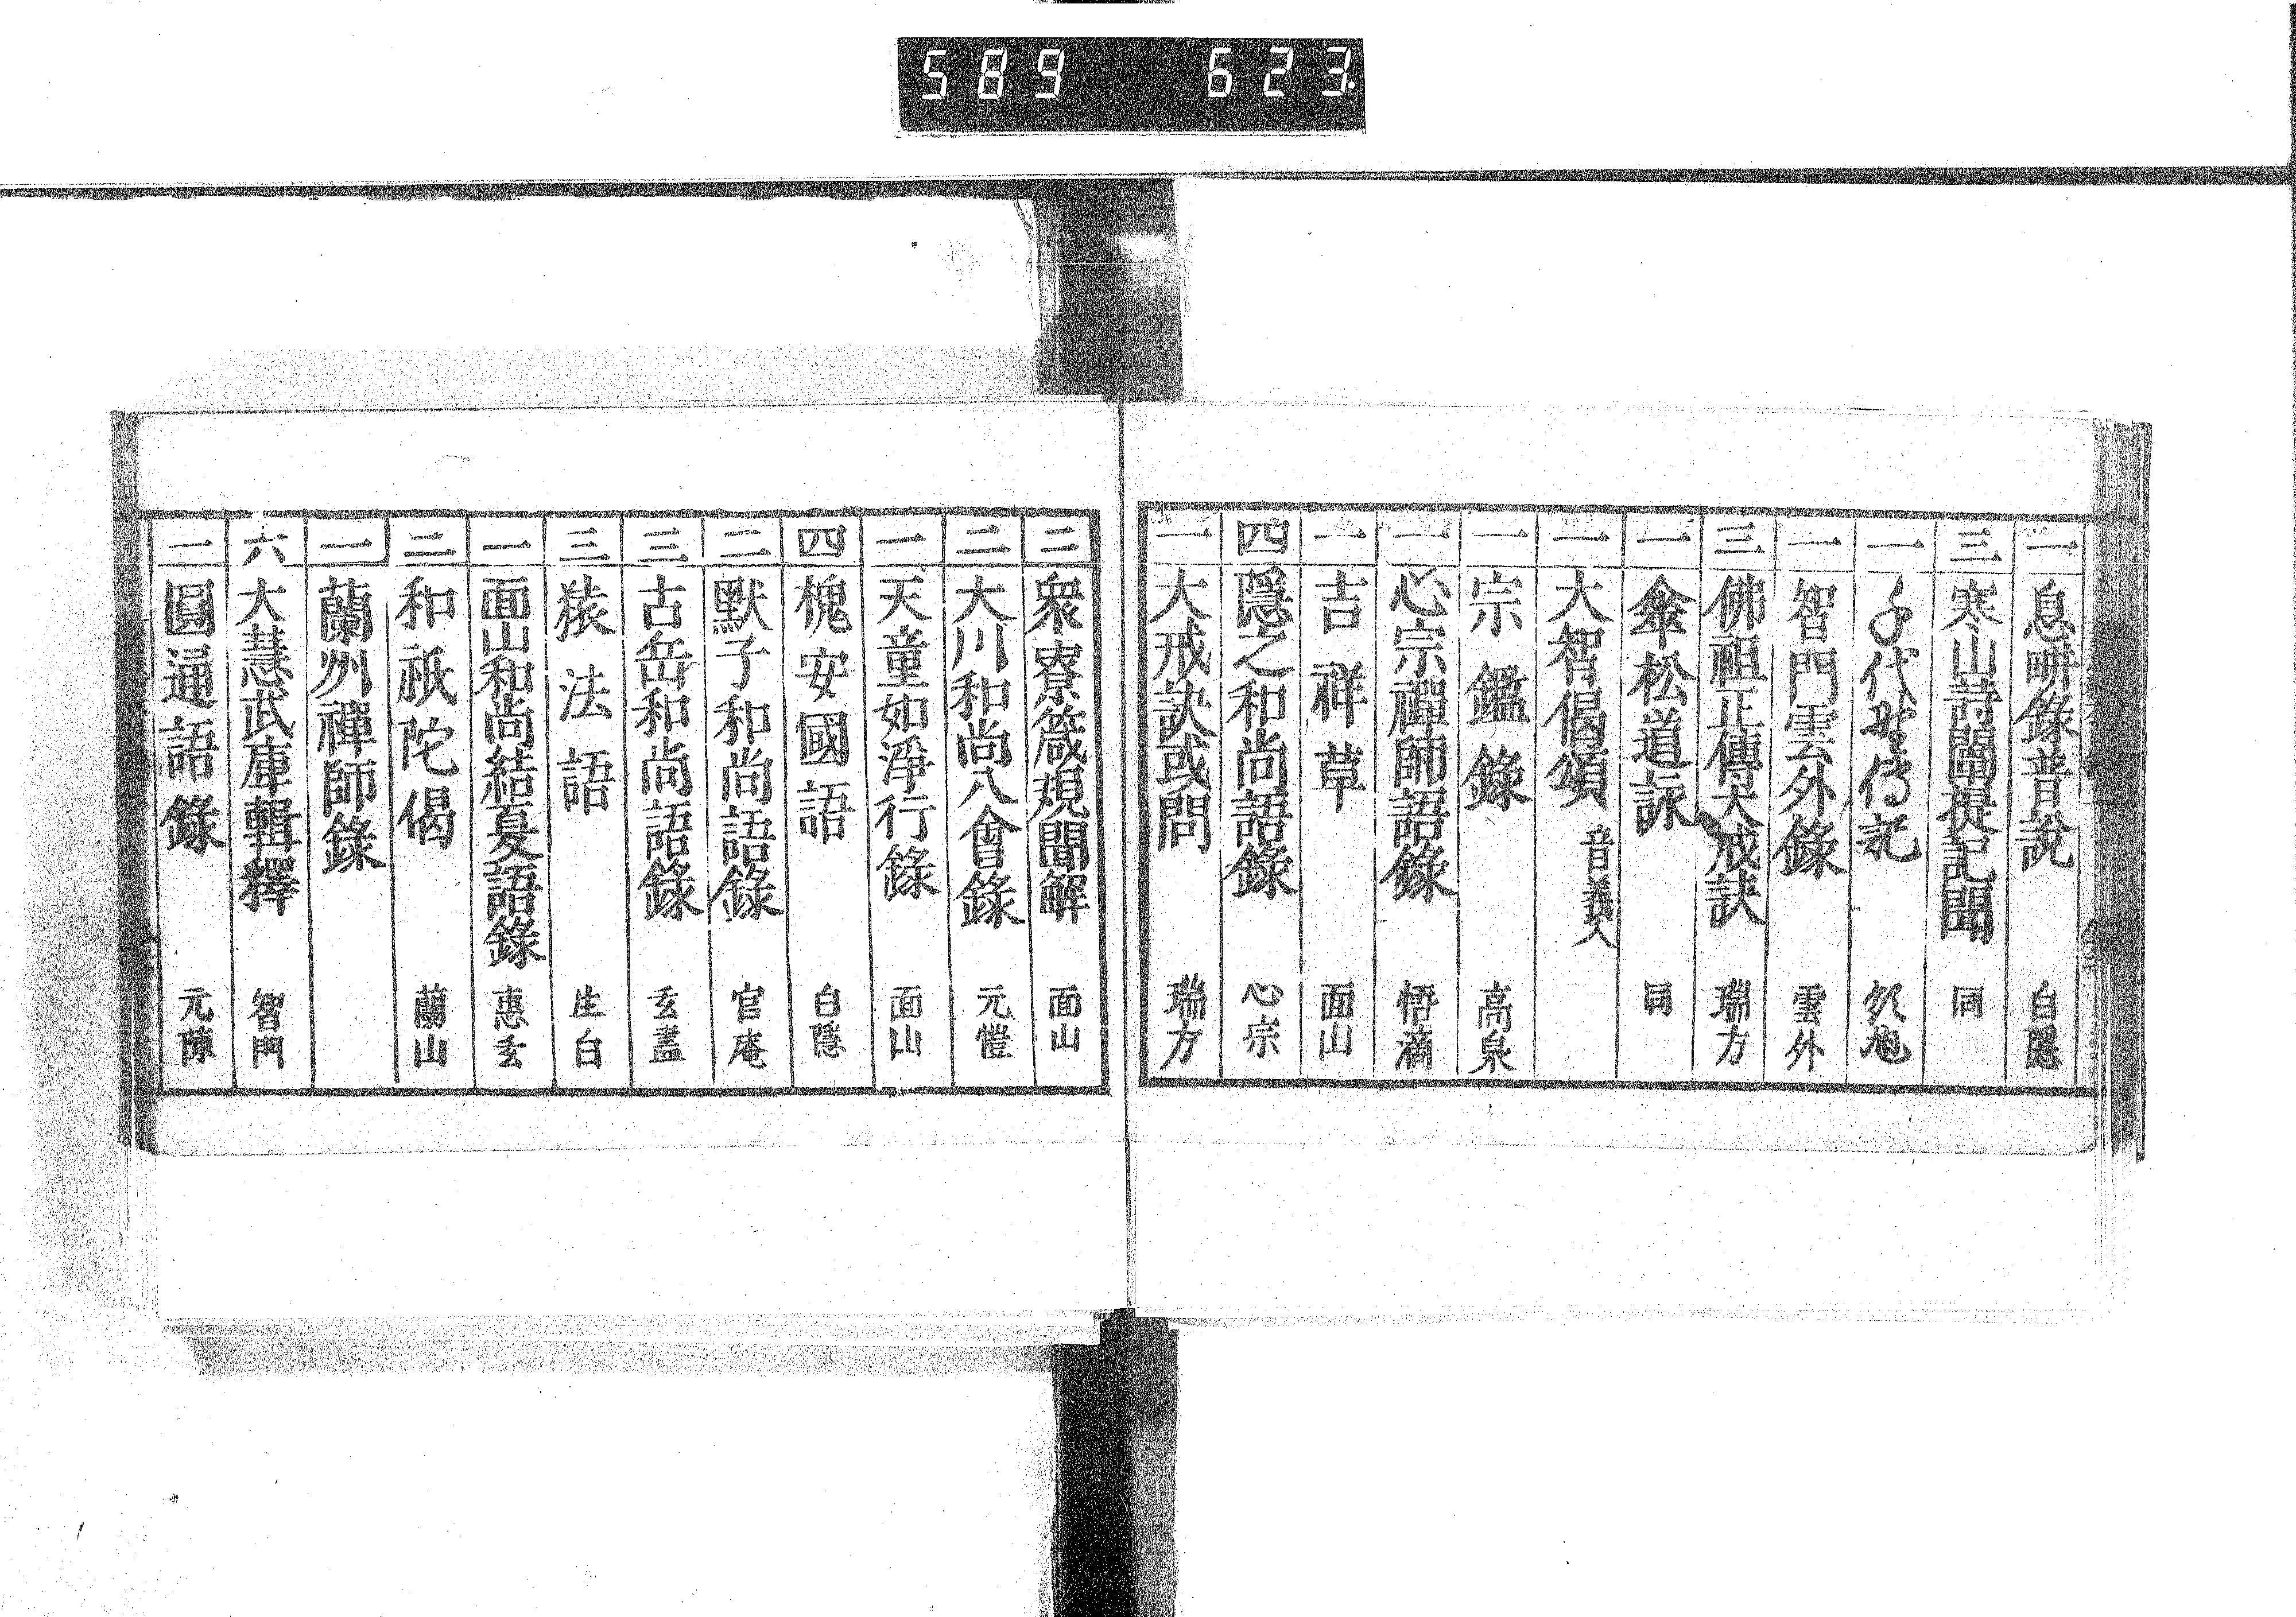 589 623.
一 息畊錄普說 白隱
三 寒山詩闡提記聞 同
一 千代聖傳記
一 智門雲外錄 雲外
三 佛祖正傳大戒訣 瑞方
一 傘松道詠 同
一 大智偈頌 音義入
一 宗鑑錄 高泉
一 心宗禪師語錄 悟滴
一 吉祥草 面山
四 隱之和尚語錄 心宗
一 大戒訣或問 瑞方
二 衆寮箴規聞解 面山
二 大川和尚八會錄 元愷
一 天童如淨行錄 面山
四 槐安國語 白隱
二 默子和尚語錄 官庵
三 古岳和尚語錄 玄盡
三 猿法語 生白
一 面山和尚結夏語錄 惠玄
二 和祇陀偈 蘭山
一 蘭州禪師錄
六 大慧武庫輯釋 智門
二 圓通語錄 元陳